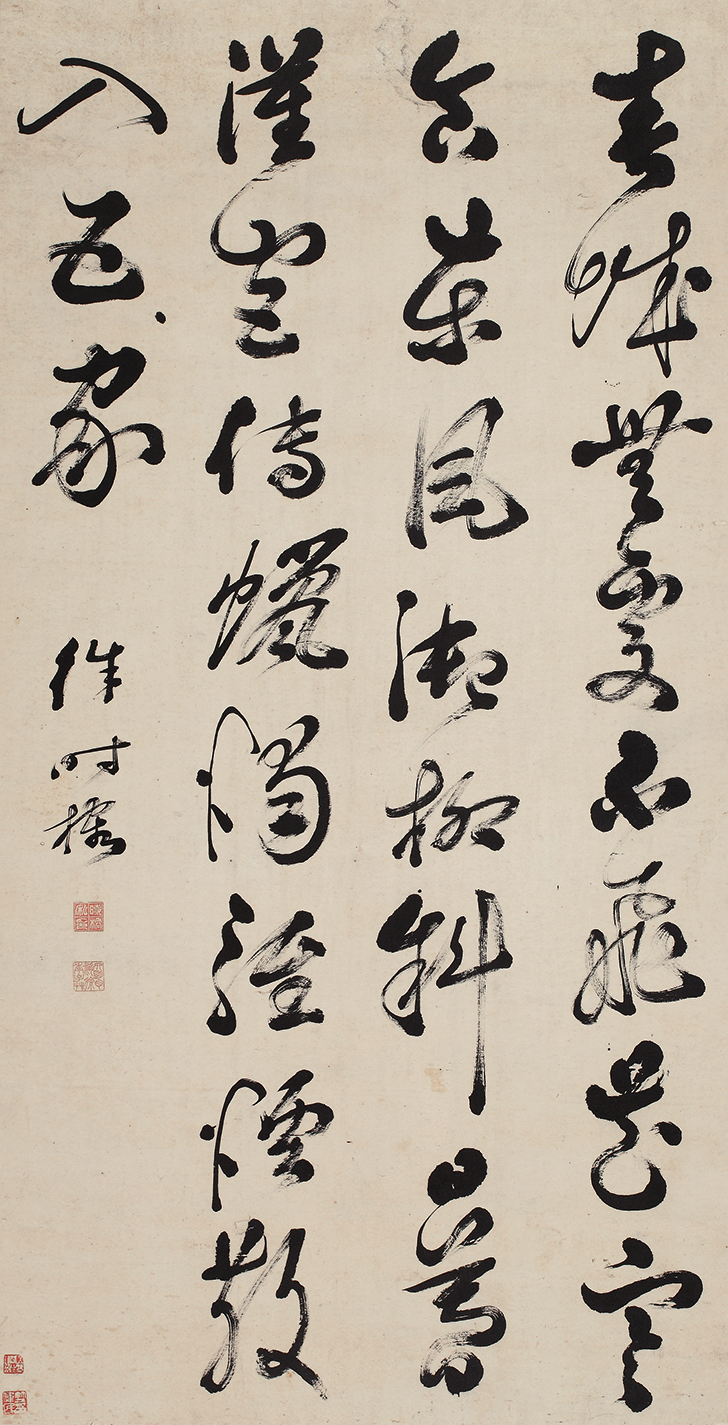 春城無處不飛花寒
食東風御柳斜日暮
漢宮傳蠟燭輕煙散
入五家
時